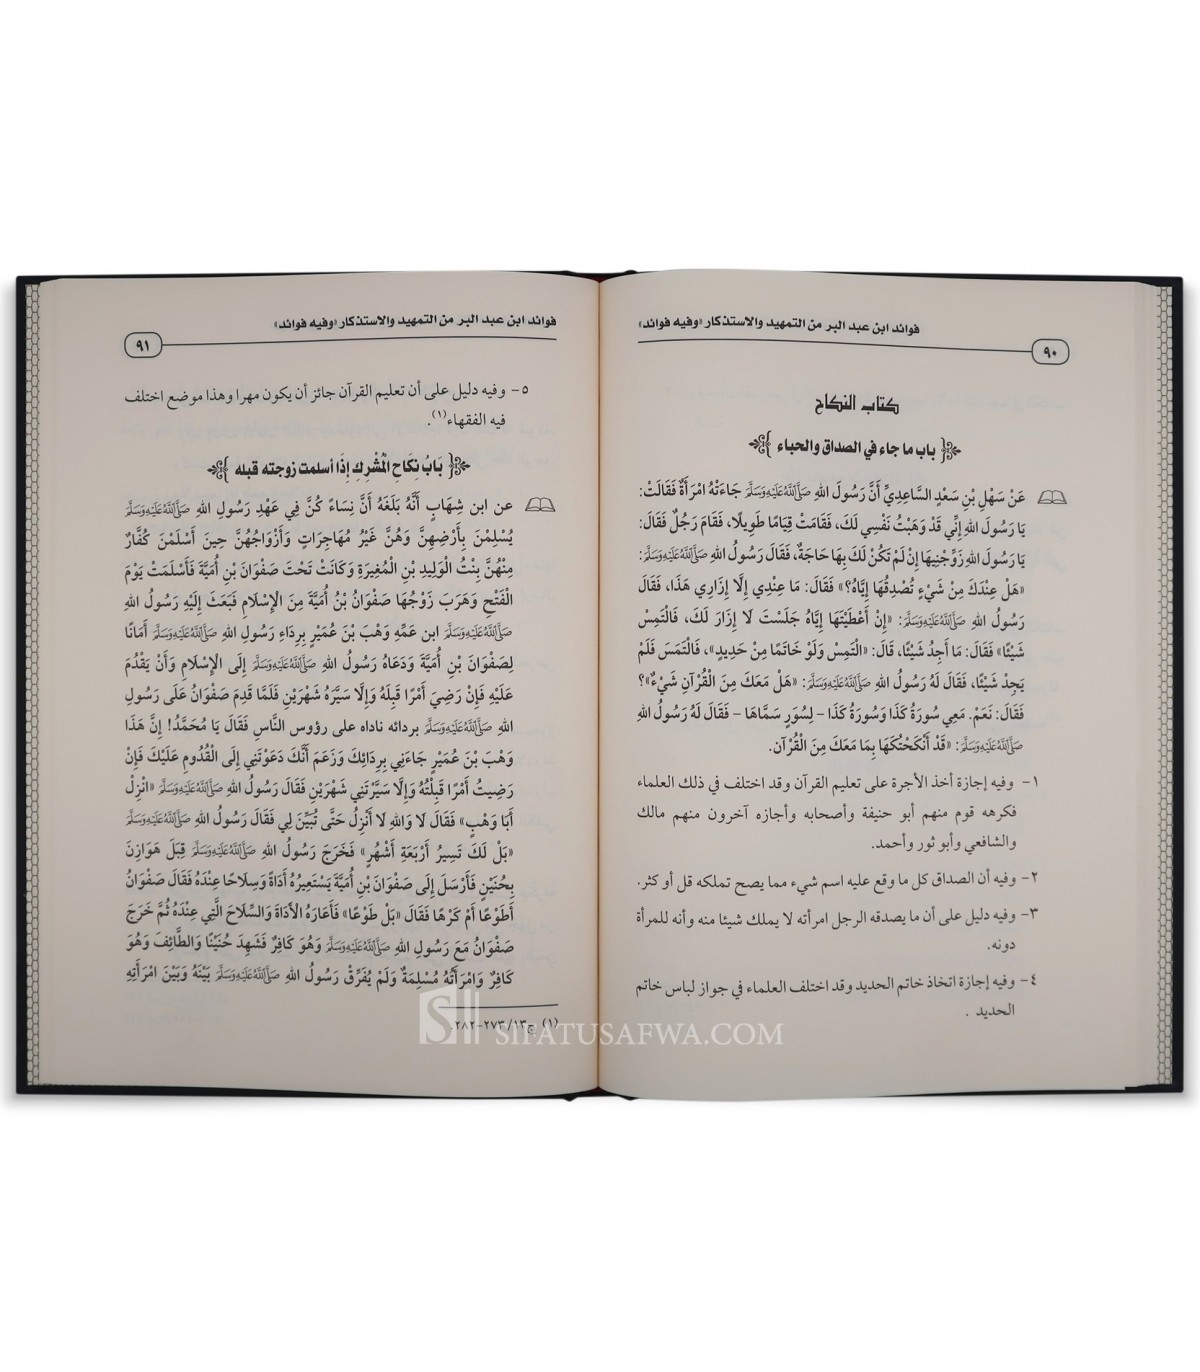 فوائد ابن عبد البر من التمهيد والاستذكار «وفيه فوائد»
٩٠
كتاب النكاح
باب ما جاء في الصداق والحباء
عَنْ سَهْلِ بْنِ سَعْدٍ السَّاعِدِيِّ أَنَّ رَسُولَ اللهِ صَلَّى اللَّهُ عَلَيْهِ وَسَلَّمَ جَاءَتْهُ امْرَأَةٌ فَقَالَتْ:
يَا رَسُولَ اللهِ إِنِّي قَدْ وَهَبْتُ نَفْسِي لَكَ، فَقَامَتْ قِيَامًا طَوِيلًا، فَقَامَ رَجُلٌ فَقَالَ:
يَا رَسُولَ اللهِ زَوِّجْنِيهَا إِنْ لَمْ تَكُنْ لَكَ بِهَا حَاجَةٌ، فَقَالَ رَسُولُ اللهِ صَلَّى اللَّهُ عَلَيْهِ وَسَلَّمَ:
«هَلْ عِنْدَكَ مِنْ شَيْءٍ تُصْدِقُهَا إِيَّاهُ؟» فَقَالَ: مَا عِنْدِي إِلَّا إِزَارِي هَذَا، فَقَالَ
رَسُولُ اللهِ صَلَّى اللَّهُ عَلَيْهِ وَسَلَّمَ: «إِنْ أَعْطَيْتَهَا إِيَّاهُ جَلَسْتَ لَا إِزَارَ لَكَ، فَالْتَمِسْ
شَيْئًا» فَقَالَ: مَا أَجِدُ شَيْئًا، قَالَ: «الْتَمِسْ وَلَوْ خَاتَمًا مِنْ حَدِيدٍ»، فَالْتَمَسَ فَلَمْ
يَجِدْ شَيْئًا، فَقَالَ لَهُ رَسُولُ اللهِ صَلَّى اللَّهُ عَلَيْهِ وَسَلَّمَ: «هَلْ مَعَكَ مِنَ الْقُرْآنِ شَيْءٌ»؟
فَقَالَ: نَعَمْ. مَعِي سُورَةُ كَذَا وَسُورَةُ كَذَا - لِسُوَرٍ سَمَّاهَا - فَقَالَ لَهُ رَسُولُ اللهِ
صَلَّى اللَّهُ عَلَيْهِ وَسَلَّمَ: «قَدْ أَنْكَحْتُكَهَا بِمَا مَعَكَ مِنَ الْقُرْآنِ.
١- وفيه إجازة أخذ الأجرة على تعليم القرآن وقد اختلف في ذلك العلماء
فكرهه قوم منهم أبو حنيفة وأصحابه وأجازه آخرون منهم مالك
والشافعي وأبو ثور وأحمد.
٢- وفيه أن الصداق كل ما وقع عليه اسم شيء مما يصح تملكه قل أو كثر.
٣- وفيه دليل على أن ما يصدقه الرجل امرأته لا يملك شيئا منه وأنه للمرأة
دونه.
٤- وفيه إجازة اتخاذ خاتم الحديد وقد اختلف العلماء في جواز لباس خاتم
الحديد .
فوائد ابن عبد البر من التمهيد والاستذكار «وفيه فوائد»
٩١
٥- وفيه دليل على أن تعليم القرآن جائز أن يكون مهرا وهذا موضع اختلف
فيه الفقهاء(١).
بَابُ نِكَاحِ الْمُشْرِكِ إِذَا أسلمت زوجته قبله
عن ابن شِهَابٍ أَنَّهُ بَلَغَهُ أَنَّ نِسَاءً كُنَّ فِي عَهْدِ رَسُولِ اللهِ صَلَّى اللَّهُ عَلَيْهِ وَسَلَّمَ
يُسْلِمْنَ بِأَرْضِهِنَّ وَهُنَّ غَيْرُ مُهَاجِرَاتٍ وَأَزْوَاجُهُنَّ حِينَ أَسْلَمْنَ كُفَّارٌ
مِنْهُنَّ بِنْتُ الْوَلِيدِ بْنِ الْمُغِيرَةِ وَكَانَتْ تَحْتَ صَفْوَانَ بْنِ أُمَيَّةَ فَأَسْلَمَتْ يَوْمَ
الْفَتْحِ وَهَرَبَ زَوْجُهَا صَفْوَانُ بْنُ أُمَيَّةَ مِنَ الْإِسْلَامِ فَبَعَثَ إِلَيْهِ رَسُولُ اللهِ
صَلَّى اللَّهُ عَلَيْهِ وَسَلَّمَ ابن عَمِّهِ وَهْبَ بْنَ عُمَيْرٍ بِرِدَاءِ رَسُولِ اللهِ صَلَّى اللَّهُ عَلَيْهِ وَسَلَّمَ أَمَانًا
لِصَفْوَانَ بْنِ أُمَيَّةَ وَدَعَاهُ رَسُولُ اللهِ صَلَّى اللَّهُ عَلَيْهِ وَسَلَّمَ إِلَى الْإِسْلَامِ وَأَنْ يَقْدُمَ
عَلَيْهِ فَإِنْ رَضِيَ أَمْرًا قَبِلَهُ وَإِلَّا سَيَّرَهُ شَهْرَيْنِ فَلَمَّا قَدِمَ صَفْوَانُ عَلَى رَسُولِ
اللهِ صَلَّى اللَّهُ عَلَيْهِ وَسَلَّمَ بردائه ناداه على رؤوس النَّاسِ فَقَالَ يَا مُحَمَّدُ! إِنَّ هَذَا
وَهْبَ بْنَ عُمَيْرٍ جَاءَنِي بِرِدَائِكَ وَزَعَمَ أَنَّكَ دَعَوْتَنِي إِلَى الْقُدُومِ عَلَيْكَ فَإِنْ
رَضِيتُ أَمْرًا قَبِلْتُهُ وَإِلَّا سَيَّرْتَنِي شَهْرَيْنِ فَقَالَ رَسُولُ اللهِ صَلَّى اللَّهُ عَلَيْهِ وَسَلَّمَ «انْزِلْ
أَبَا وَهْبٍ» فَقَالَ لَا وَاللهِ لَا أَنْزِلُ حَتَّى تُبَيِّنَ لِي فَقَالَ رَسُولُ اللهِ صَلَّى اللَّهُ عَلَيْهِ وَسَلَّمَ
«بَلْ لَكَ تَسِيرُ أَرْبَعَةَ أَشْهُرٍ» فَخَرَجَ رَسُولُ اللهِ صَلَّى اللَّهُ عَلَيْهِ وَسَلَّمَ قِبَلَ هَوَازِنَ
بِحُنَيْنٍ فَأَرْسَلَ إِلَى صَفْوَانَ بْنِ أُمَيَّةَ يَسْتَعِيرُهُ أَدَاةً وَسِلَاحًا عِنْدَهُ فَقَالَ صَفْوَانُ
أَطَوْعًا أَمْ كَرْهًا فَقَالَ «بَلْ طَوْعًا» فَأَعَارَهُ الْأَدَاةَ وَالسِّلَاحَ الَّتِي عِنْدَهُ ثُمَّ خَرَجَ
صَفْوَانُ مَعَ رَسُولِ اللهِ صَلَّى اللَّهُ عَلَيْهِ وَسَلَّمَ وَهُوَ كَافِرٌ فَشَهِدَ حُنَيْنًا وَالطَّائِفَ وَهُوَ
كَافِرٌ وَامْرَأَتُهُ مُسْلِمَةٌ وَلَمْ يُفَرِّقْ رَسُولُ اللهِ صَلَّى اللَّهُ عَلَيْهِ وَسَلَّمَ بَيْنَهُ وَبَيْنَ امْرَأَتِهِ
(١) ج١٣/٢٧٣-٢٨٢.
SIFATUSAFWA.COM